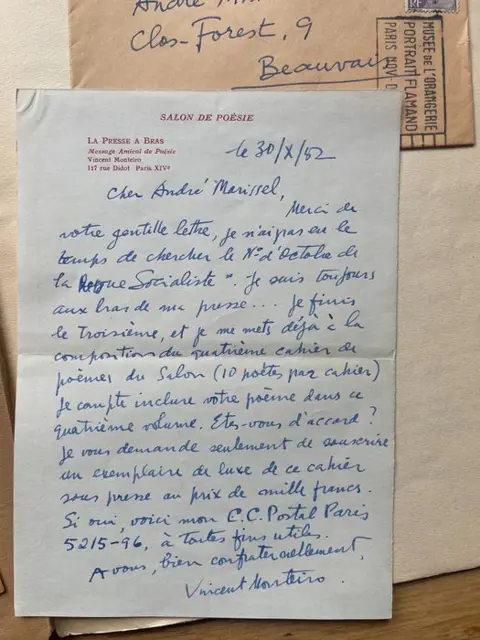 André
Clos-Forest, 9
Beauvais
RF
MUSEE DE L'ORANGERIE
PORTRAIT FLAMAND
PARIS NOV D
SALON DE POÉSIE
LA PRESSE A BRAS
Message Amical de Poésie
Vincent Monteiro
117 rue Didot Paris XIVe
le 30/X/52
Cher André Marissel,
Merci de
votre gentille lettre, je n'ai pas eu le
temps de chercher le No d'Octobre de
la Revue Socialiste". Je suis toujours
aux bras de ma presse... Je finis
le Troisième, et je me mets déjà à la
composition du quatrième cahier de
poèmes du Salon (10 poètes par cahier)
Je compte inclure votre poème dans ce
quatrième volume. Etes-vous d'accord ?
Je vous demande seulement de souscrire
un exemplaire de luxe de ce cahier
sous presse au prix de mille francs.
Si oui, voici mon C.C. Postal Paris
5215-96, à toutes fins utiles.
A vous, bien confraternellement,
Vincent Monteiro.